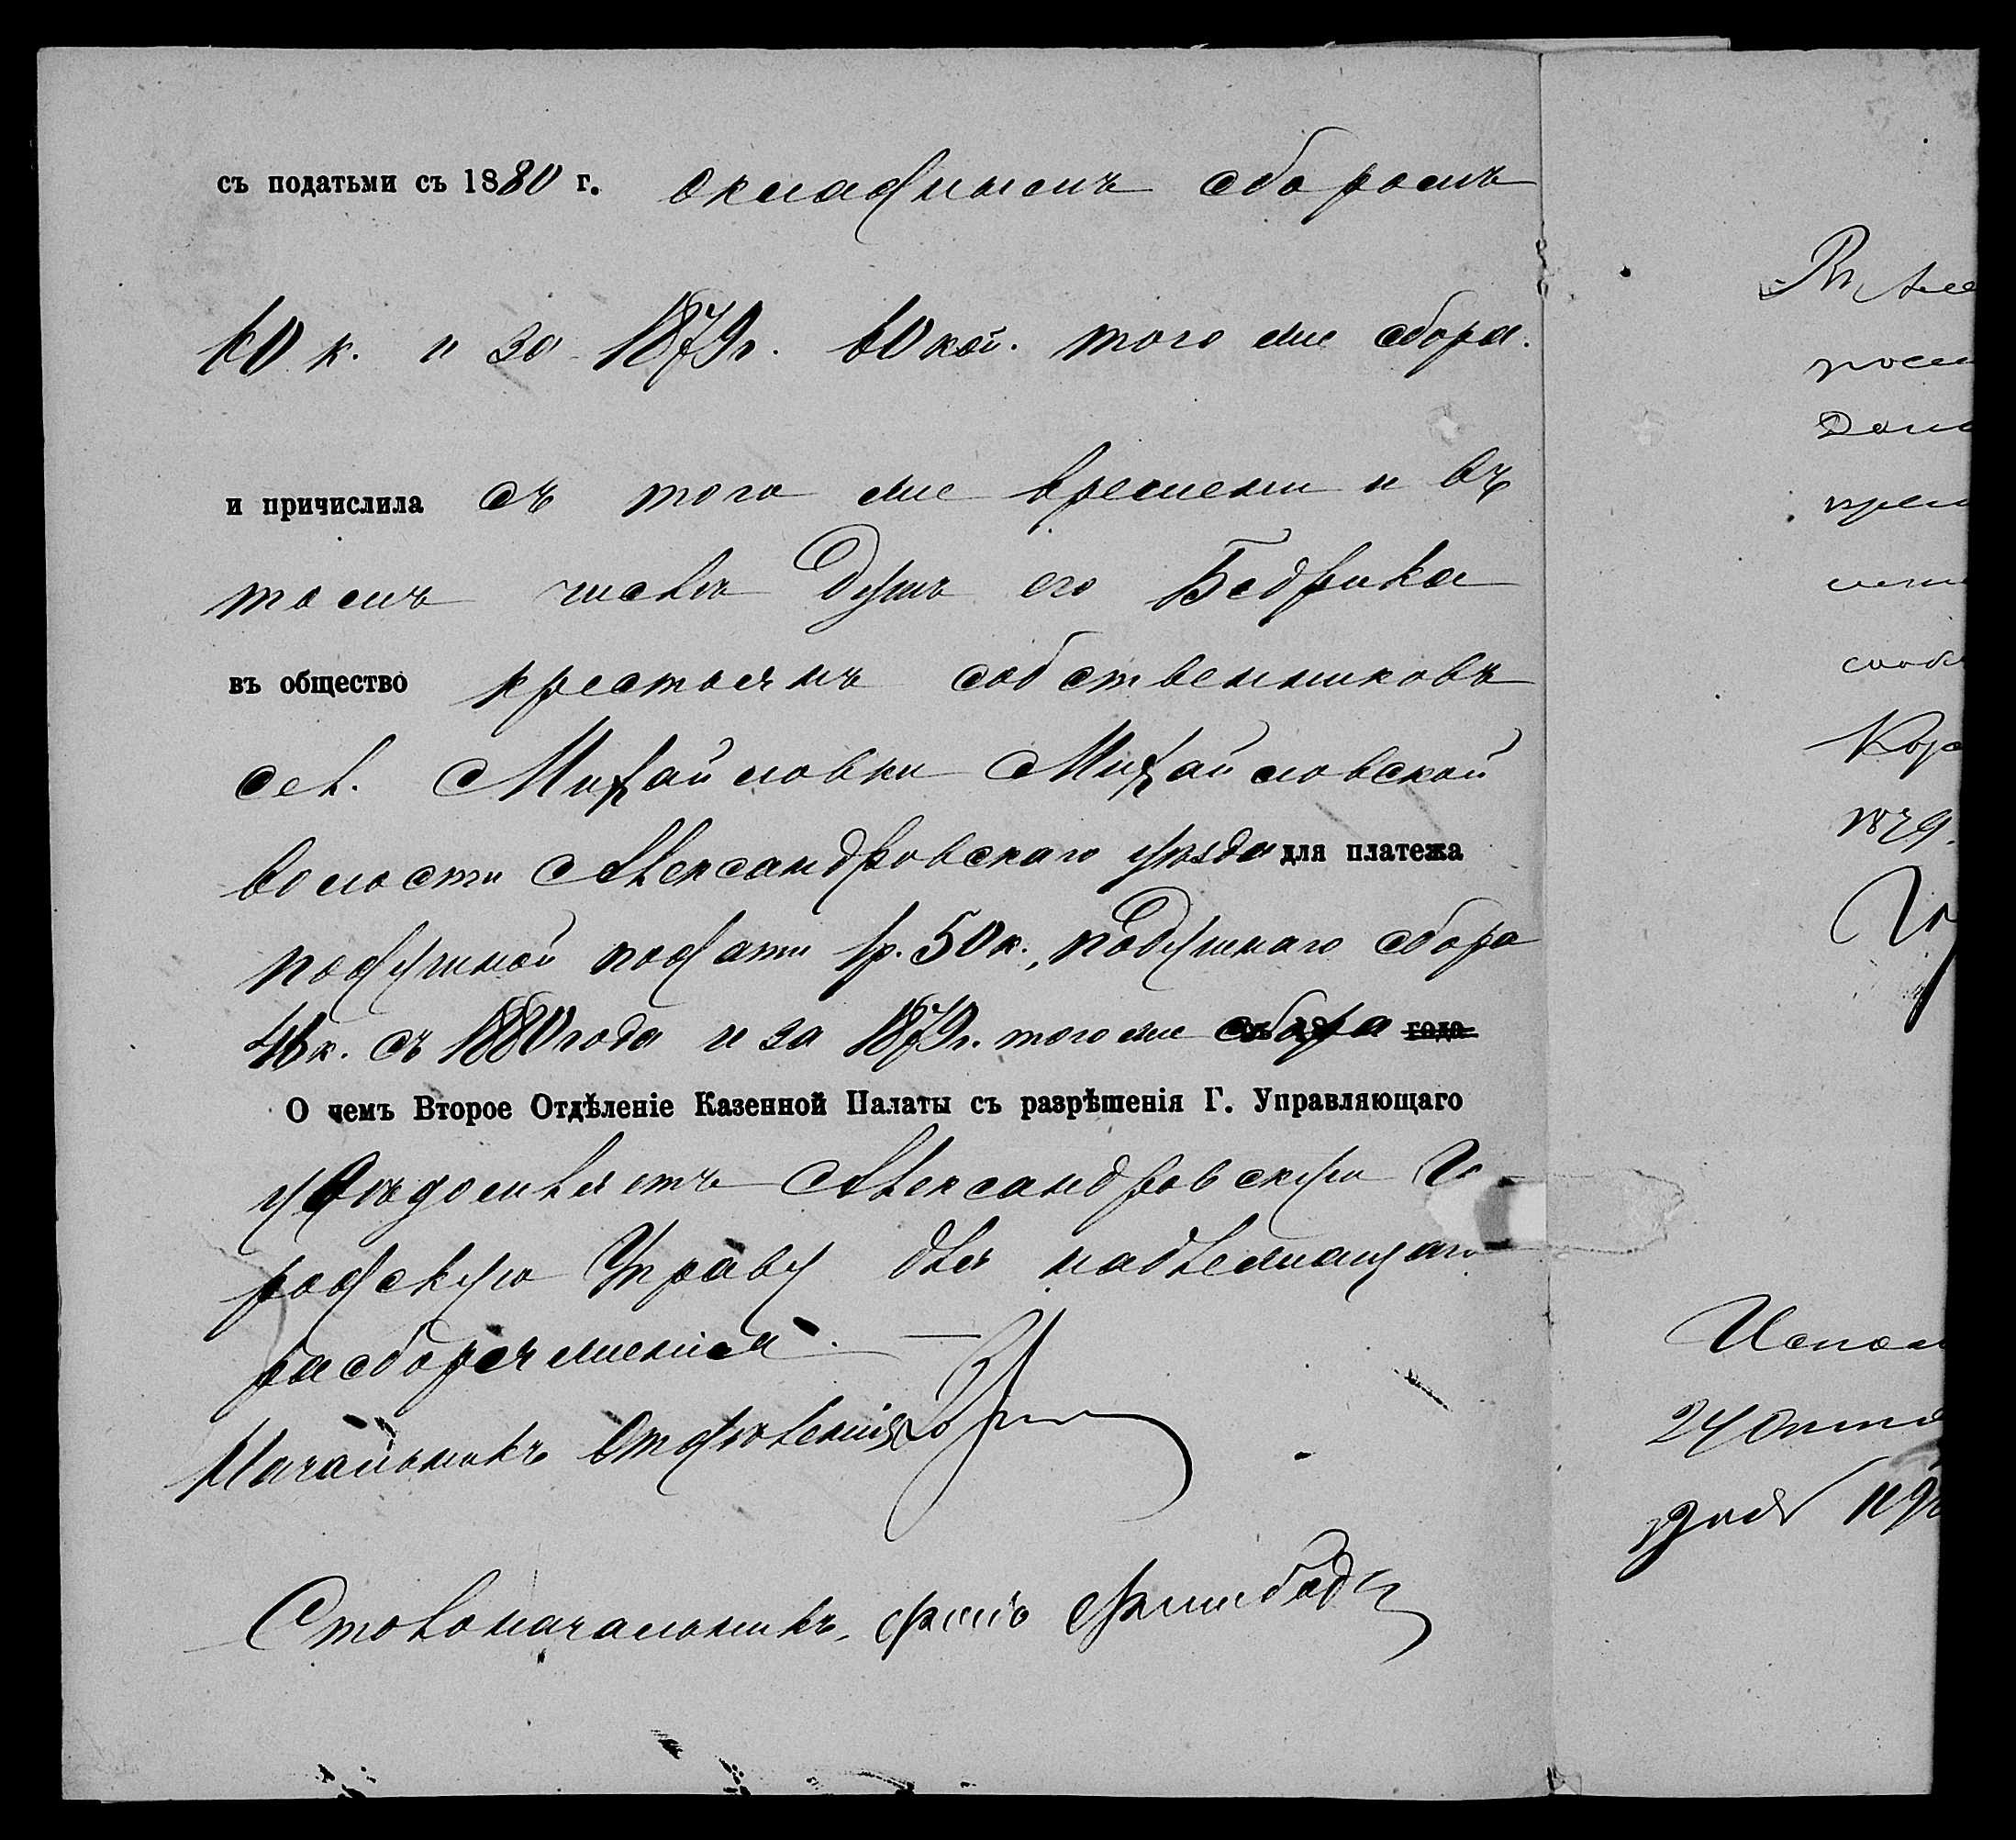 съ податьми съ 1880 г. окладнымъ сборомъ
60 к. и за 1879 г. 60 коп. того же сбора.
и причислила съ того же времени и въ
томъ числѣ душъ его Бедрика
въ общество крестьянъ собственниковъ
сел. Михайловки Михайловской
волости Александровскаго уѣзда для платежа
подушной подати 1 р. 50 к., подушнаго сбора
46 к. съ 1880 года и за 1879 г. того же сбора года
О чемъ Второе Отдѣленіе Казенной Палаты съ разрѣшенія Г. Управляющаго
увѣдомляетъ Александровскую Го-
родскую Управу для надлежащаго
распоряженія.
Начальникъ Отдѣленія
Столоначальникъ,
1879.